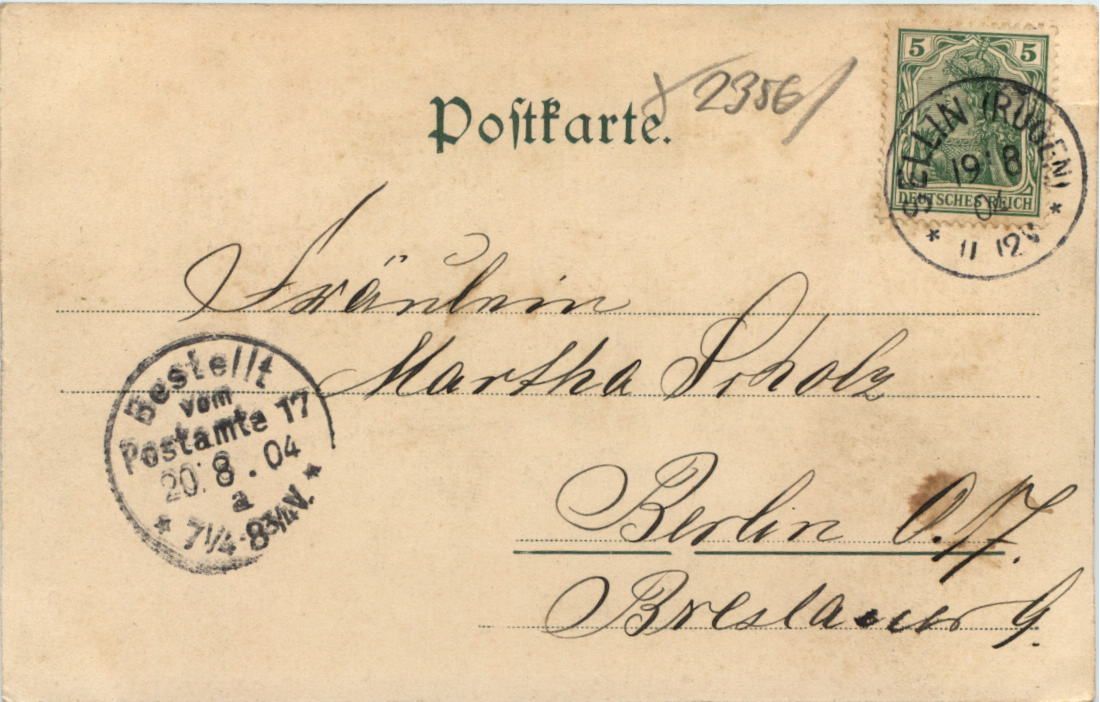 5 5
DEUTSCHES REICH
SELLIN (RÜGEN)
19 8
04
11 12V
Postkarte.
2356
Fräulein
Martha Scholz
Bestellt
vom
Postamte 17
20.8.04
a
* 7¼-8¾V. *
Berlin O. 17.
Breslauer 9.